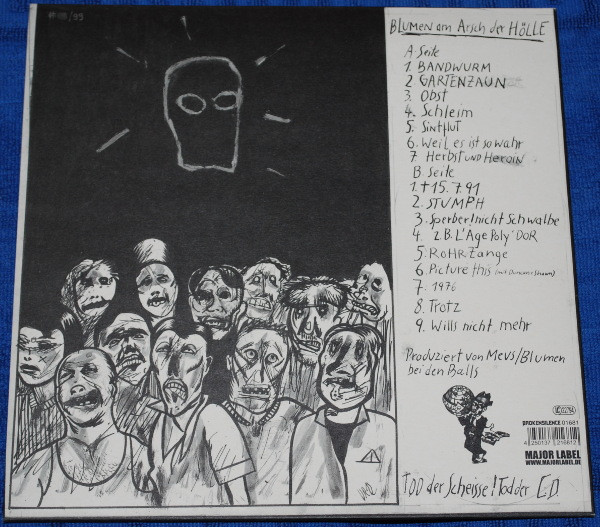 BLUMEN am Arsch der HÖLLE
A Seite
1. BANDWURM
2 GARTENZAUN
3. Obst
4. Schleim
5. Sintflut
6. Weil es ist so wahr
7. Herbst UND Heroin
B. Seite
1. †15.7.91
2. STUMPH
3. Sperber/nicht Schwalbe
4. z.B. L'Age Poly'DOR
5. ROHRZange
6 Picture this
7. 1976
8. Trotz
9. Wills nicht mehr
Produziert von Mevs/Blumen
bei den Balls
LC 02794
BROKENSILENCE 01681
4 250137 216812
MAJOR LABEL
WWW.MAJORLABEL.DE
TOD der Scheisse! Tod der CD.